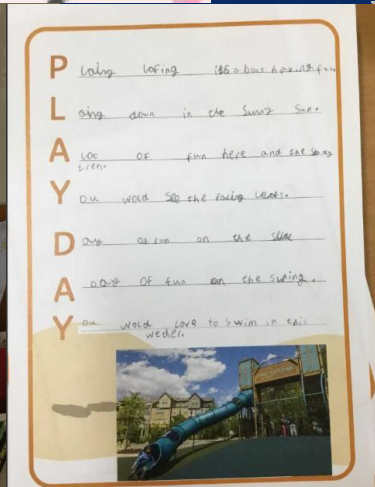 P laing lafing its about having fun
L aing down in the Sunny Sun.
A loc of fun here and the
trees.
Y ou wold see the leavs.
D ays of fun on the slide
A a day of fun on the swing.
Y ou wold love to swim in this
wether.